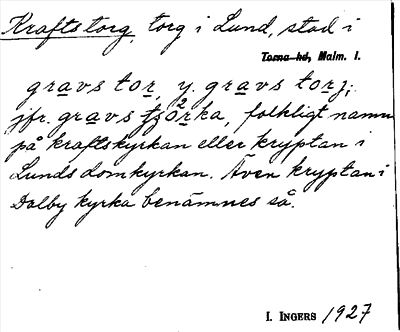 Kraftstorg, torg i Lund, stad i
Torna hd, Malm. l.
gravs tor, y. gravs torj;
jfr. gravs tjörka, folkligt namn
på kraftskyrkan eller kryptan i
Lunds domkyrkan. Även kryptan i
Dalby kyrka benämnes så.
I. INGERS 1927